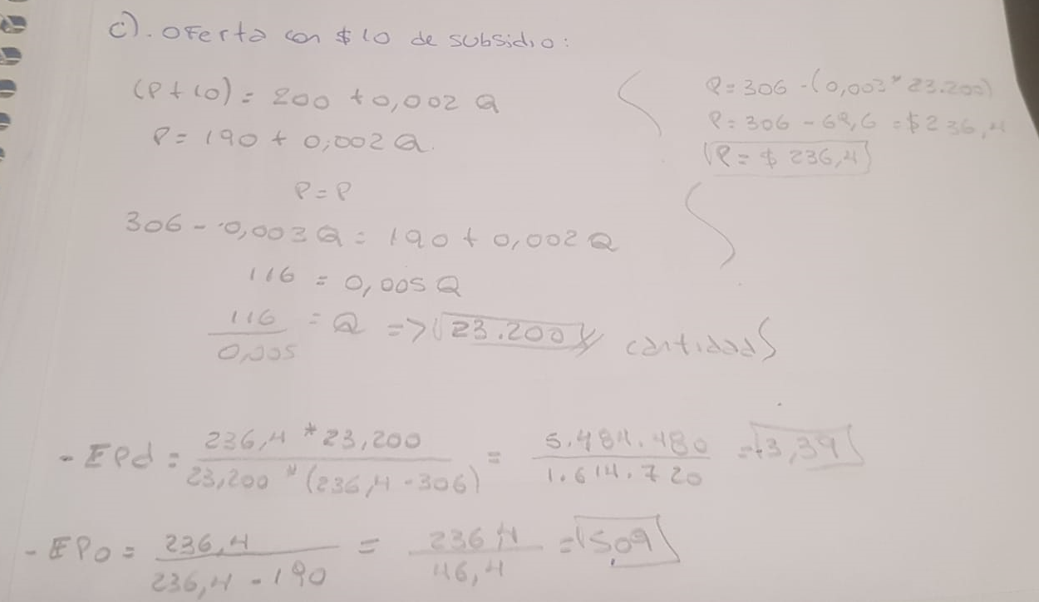 c). Oferta con $10 de subsidio:
(P + 10) = 200 + 0,002 Q
P = 190 + 0,002 Q.
P = P
306 - 0,003 Q = 190 + 0,002 Q
116 = 0,005 Q
116 / 0,005 = Q => 23.200 cantidad
P = 306 - (0,003 * 23.200)
P = 306 - 69,6 = $236,4
P = $ 236,4
- EPd = 236,4 * 23,200 / 23,200 * (236,4 - 306) = 5.484.480 / 1.614.720 = -3,39
- EPO = 236,4 / 236,4 - 190 = 236,4 / 46,4 = 5,09